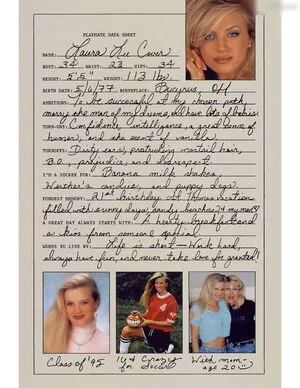 PLAYMATE DATA SHEET
NAME: Laura Lee Cover
BUST: 34 WAIST: 23 HIPS: 34
HEIGHT: 5'5" WEIGHT: 113 lbs.
BIRTH DATE: 5/6/77 BIRTHPLACE: Bucyrus, OH
AMBITIONS: To be successful at my chosen path,
marry the man of my dreams, and have lots of babies!
TURN-ONS: Confidence, intelligence, a great sense of
humor, and the scent of vanilla!
TURNOFFS: Dirty ears, protruding nostril hair,
B.O., prejudice, and disrespect.
I'M A SUCKER FOR: Banana milk shakes,
Werther's candies, and puppy dogs.
FONDEST MEMORY: 21st birthday St. Thomas vacation
filled with sunny days, sandy beaches & my man
A GREAT DAY ALWAYS STARTS WITH: A hearty breakfast and
a kiss from someone special.
WORDS TO LIVE BY: Life is short — Work hard,
always have fun, and never take love for granted!
Class of '95
14 & Crazy for Soccer
With mom - age 20